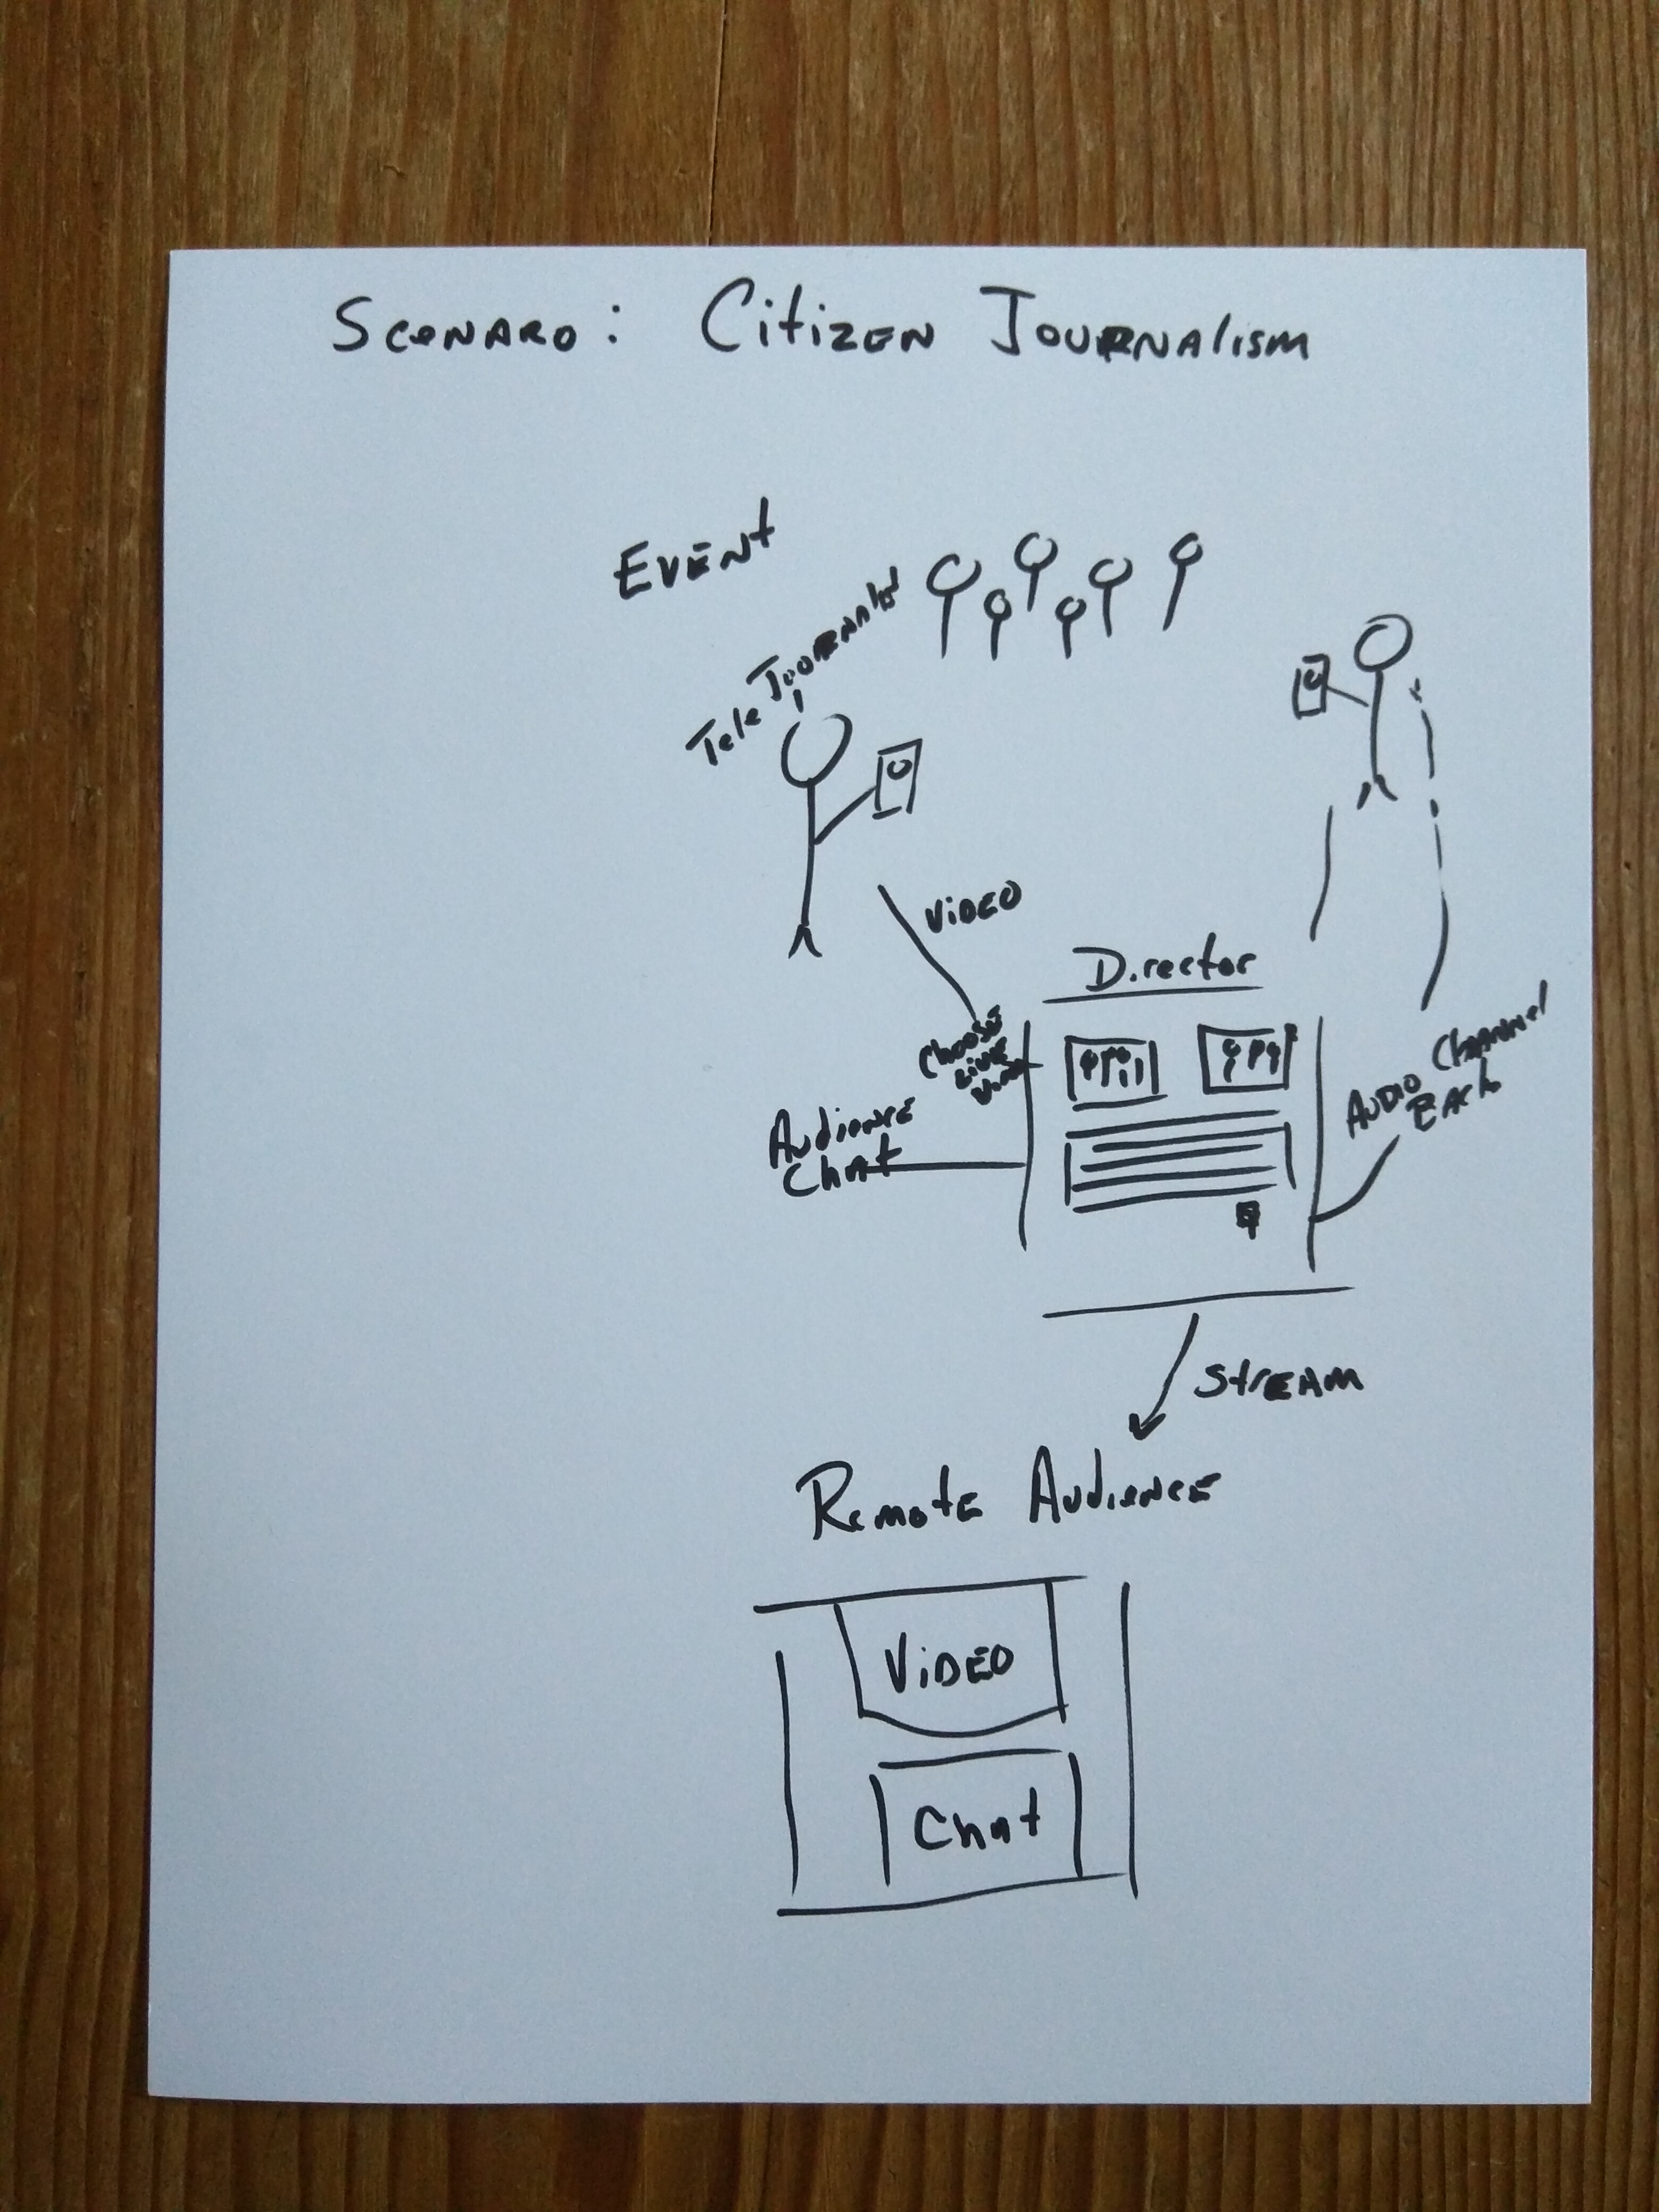 Scenaro: Citizen Journalism
Event
Tele Journalist
Video
Director
Choose
Live
Video
Audience
Chat
Audio Channel
Back
Stream
Remote Audience
Video
Chat